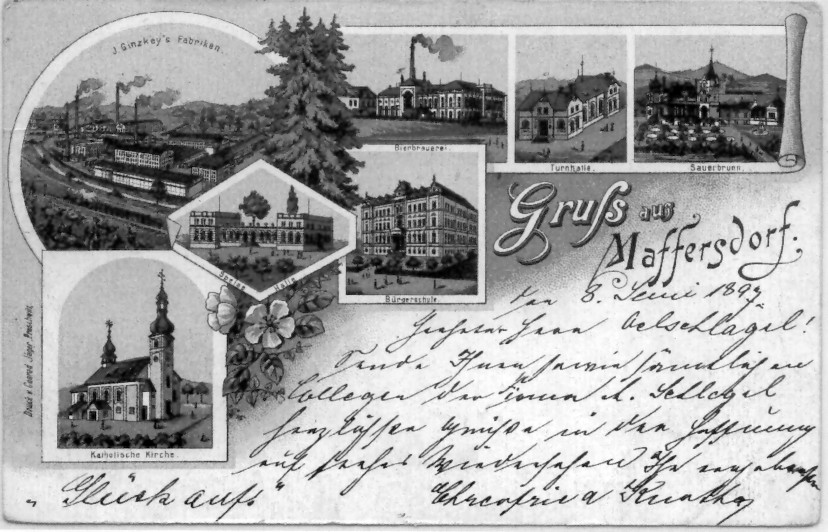 J. Ginzkey's Fabriken.
Bierbrauerei.
Turnhalle.
Sauerbrunn.
Speise Halle
Bürgerschule.
Katholische Kirche.
Druck v. Conrad Jäger, Reichenberg
Gruß aus
Maffersdorf.
den 8. Juni 1897
Geehrter Herr Oelschlägel!
Sende Ihnen sowie sämtlichen
Collegen der Firma A. Schlegel
herzlichste Grüße in der Hoffnung
auf frohes Wiedersehen Ihr ergebenster
„Glück auf!"
Ehrenfried